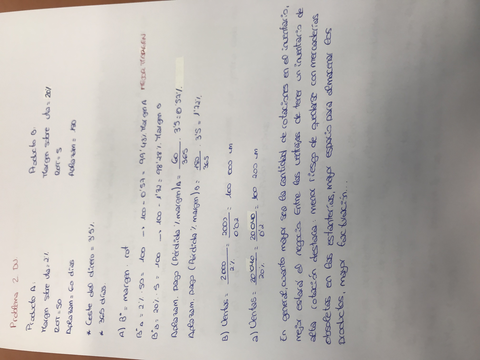 Problema 2 DJ
Producto A:
Margen sobre vta = 2%
ROT = 50
Aplazam = 60 dias
Producto B:
Margen sobre vta = 20%
ROT = 5
Aplazam = 180
* Coste del dinero = 3'5%
* 365 dias
A) Bº = margen · rot
Bº A = 2% · 50 = 100 → 100 - 0'57 = 99'43% Margen A MEJOR MARGEN
Bº B = 20% · 5 = 100 → 100 - 1'72 = 98'28% Margen B
Aplazam. pago (Perdida % margen) A = 60 / 365 · 3'5 = 0'57%
Aplazam. pago (Perdida % margen) B = 180 / 365 · 3'5 = 1'72%
B) Ventas = 2000 / 2% = 2000 / 0'02 = 100 000 um
a) Ventas = 20 040 / 20% = 20 040 / 0'2 = 100 200 um
En general, cuanto mayor sea la cantidad de rotaciones en el inventario,
mejor estará el negocio. Entre las ventajas de tener un inventario de
alta rotación destaca: menor riesgo de quedarse con mercaderias
obsoletas en las estanterias, mayor espacio para almacenar los
productos, mayor facturación.